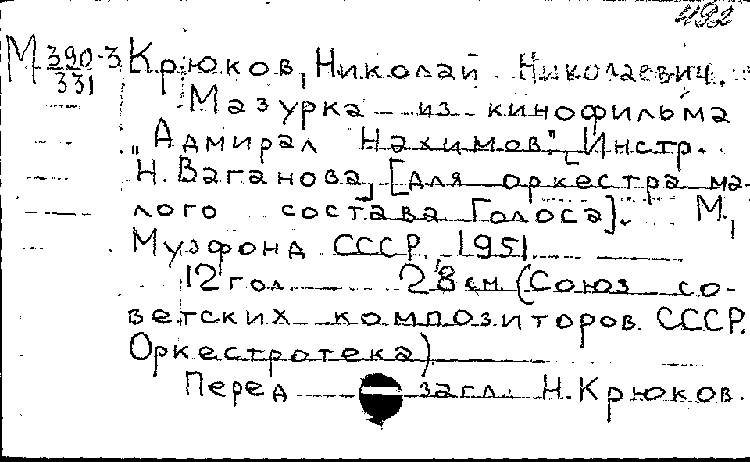 492
М 390-3 Крюков, Николай Николаевич.
331
Мазурка из кинофильма
„Адмирал Нахимов". [Инстр.
Н. Ваганова], [для оркестра ма-
лого состава Голоса]. М.,
Музфонд СССР, 1951
12 гол. 28 см (Союз со-
ветских композиторов СССР.
Оркестротека)
Перед загл. Н. Крюков.